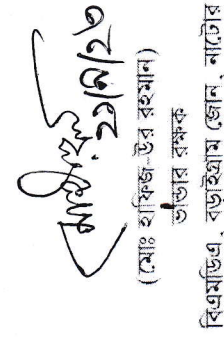 ২১/৫/২৩
(মোঃ হাফিজ-উর রহমান)
ভান্ডার রক্ষক
বিএমডিএ, বড়াইগ্রাম জোন, নাটোর